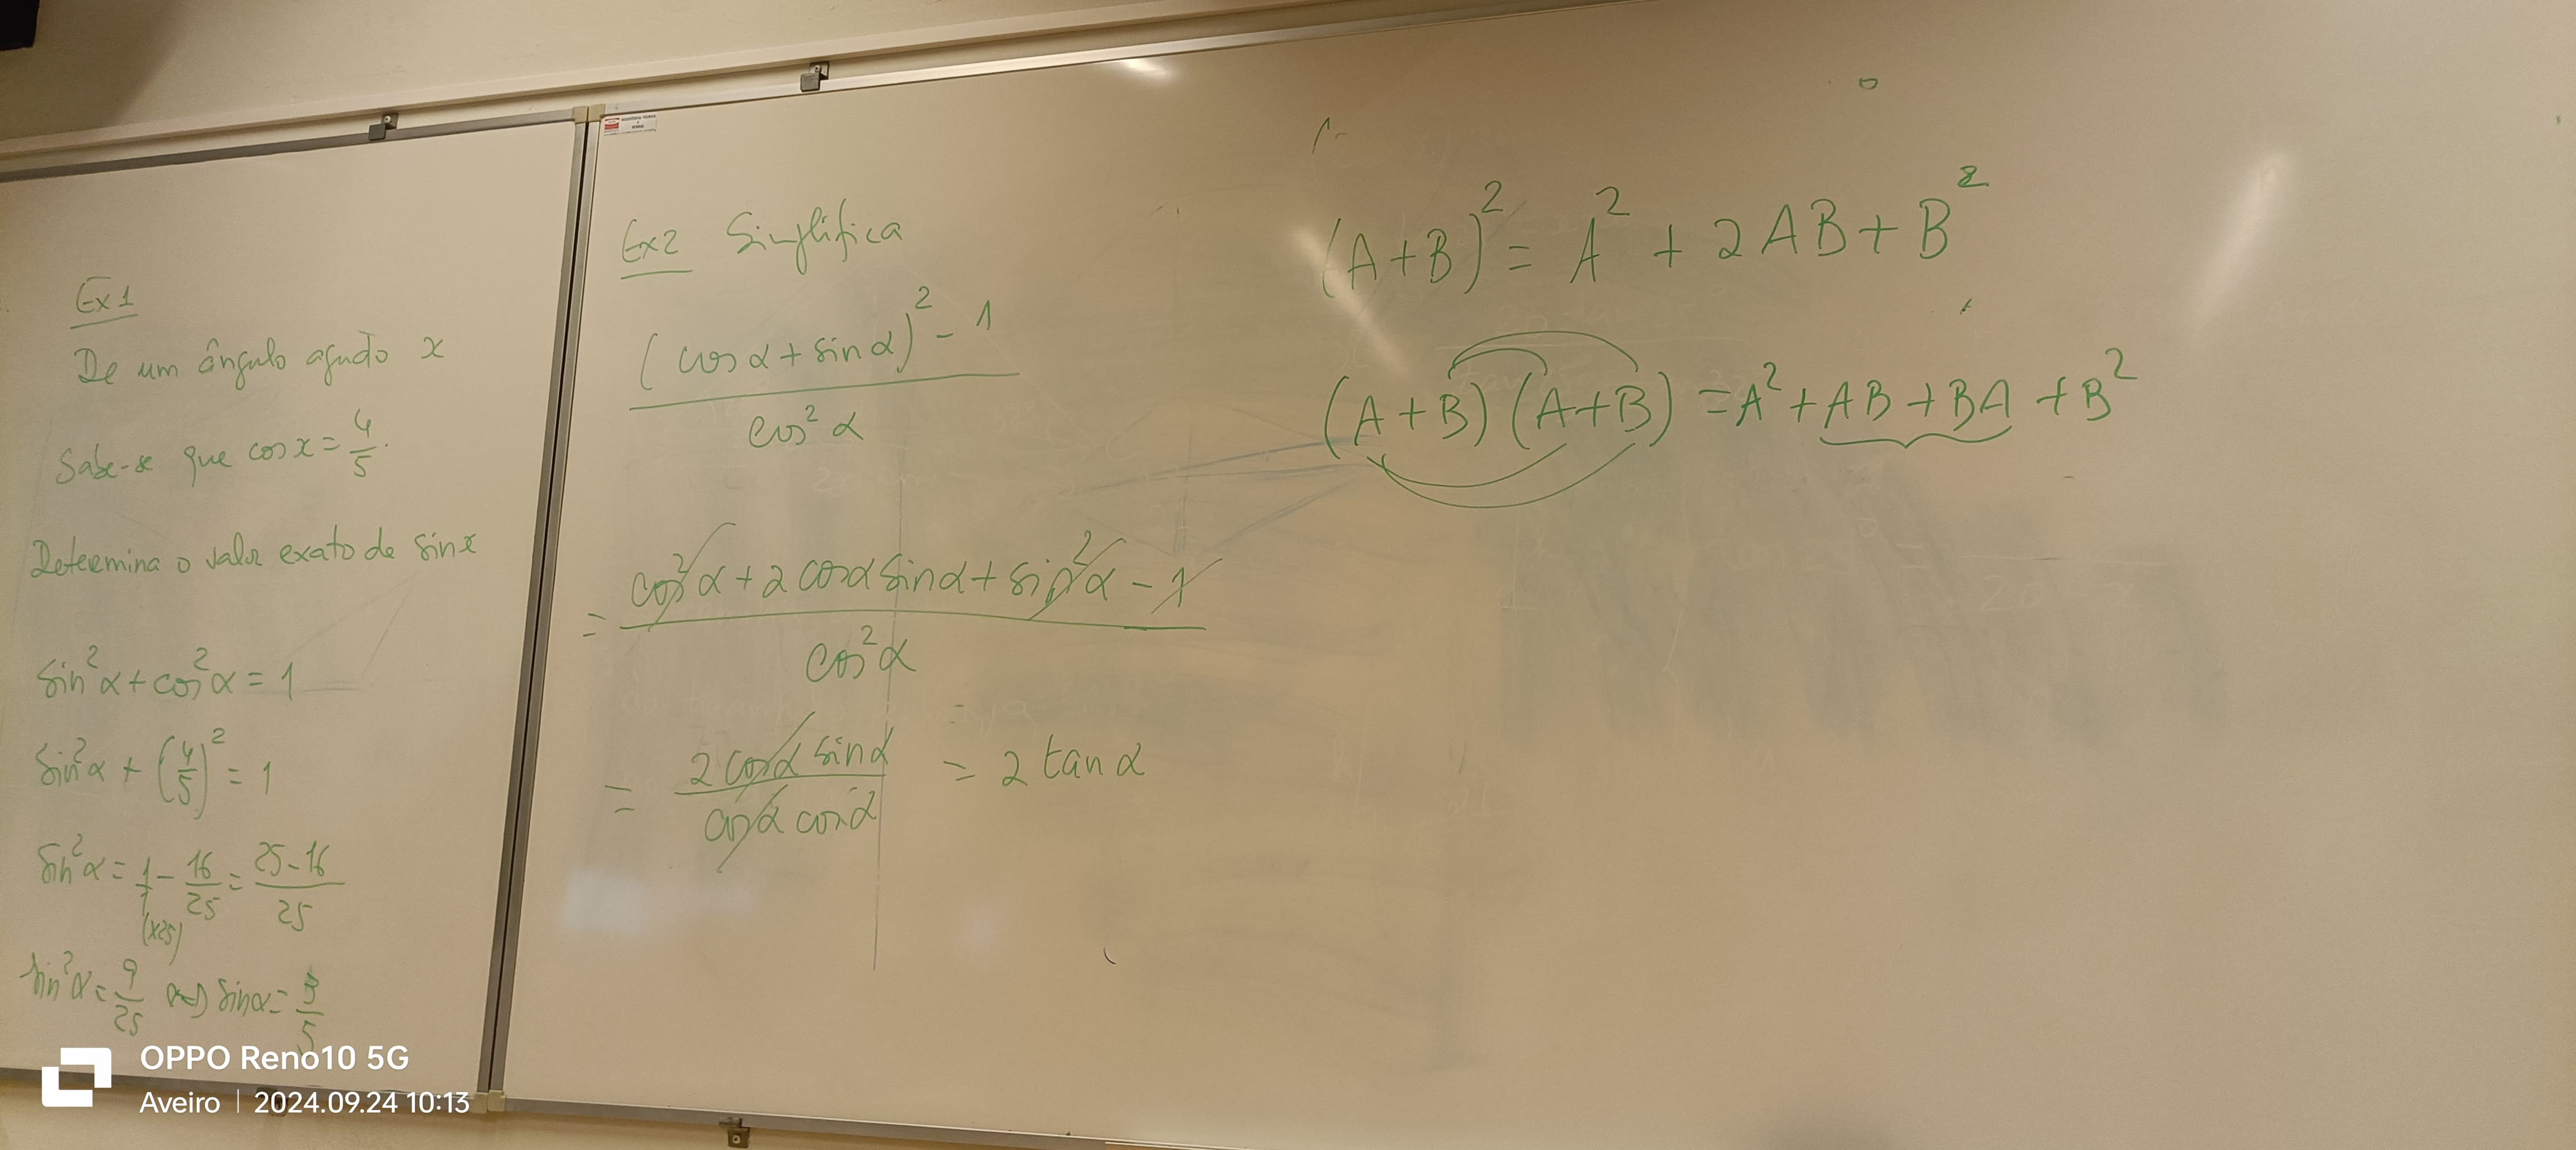 Ex1
De um ângulo agudo x
Sabe-se que cos x = 4/5.
Determina o valor exato de sin x
sin²α + cos²α = 1
sin²α + (4/5)² = 1
sin²α = 1/1 - 16/25 = 25-16/25
(x25)
sin²α = 9/25 sinα = 3/5
Ex2 Simplifica
(cos α + sin α)² - 1
cos² α
= cos²α + 2 cosα sinα + sin²α - 1
cos²α
= 2 cosα sinα / cosα cosα = 2 tan α
(A+B)² = A² + 2AB + B²
(A+B)(A+B) = A² + AB + BA + B²
OPPO Reno10 5G
Aveiro | 2024.09.24 10:13